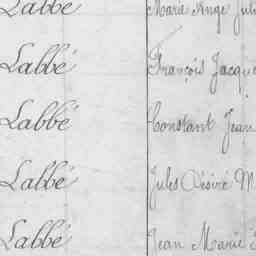 Labbé Marie Ange Juli
Labbé François Jacque
Labbé Constant Jean
Labbé Jules Désiré M
Labbé Jean Marie